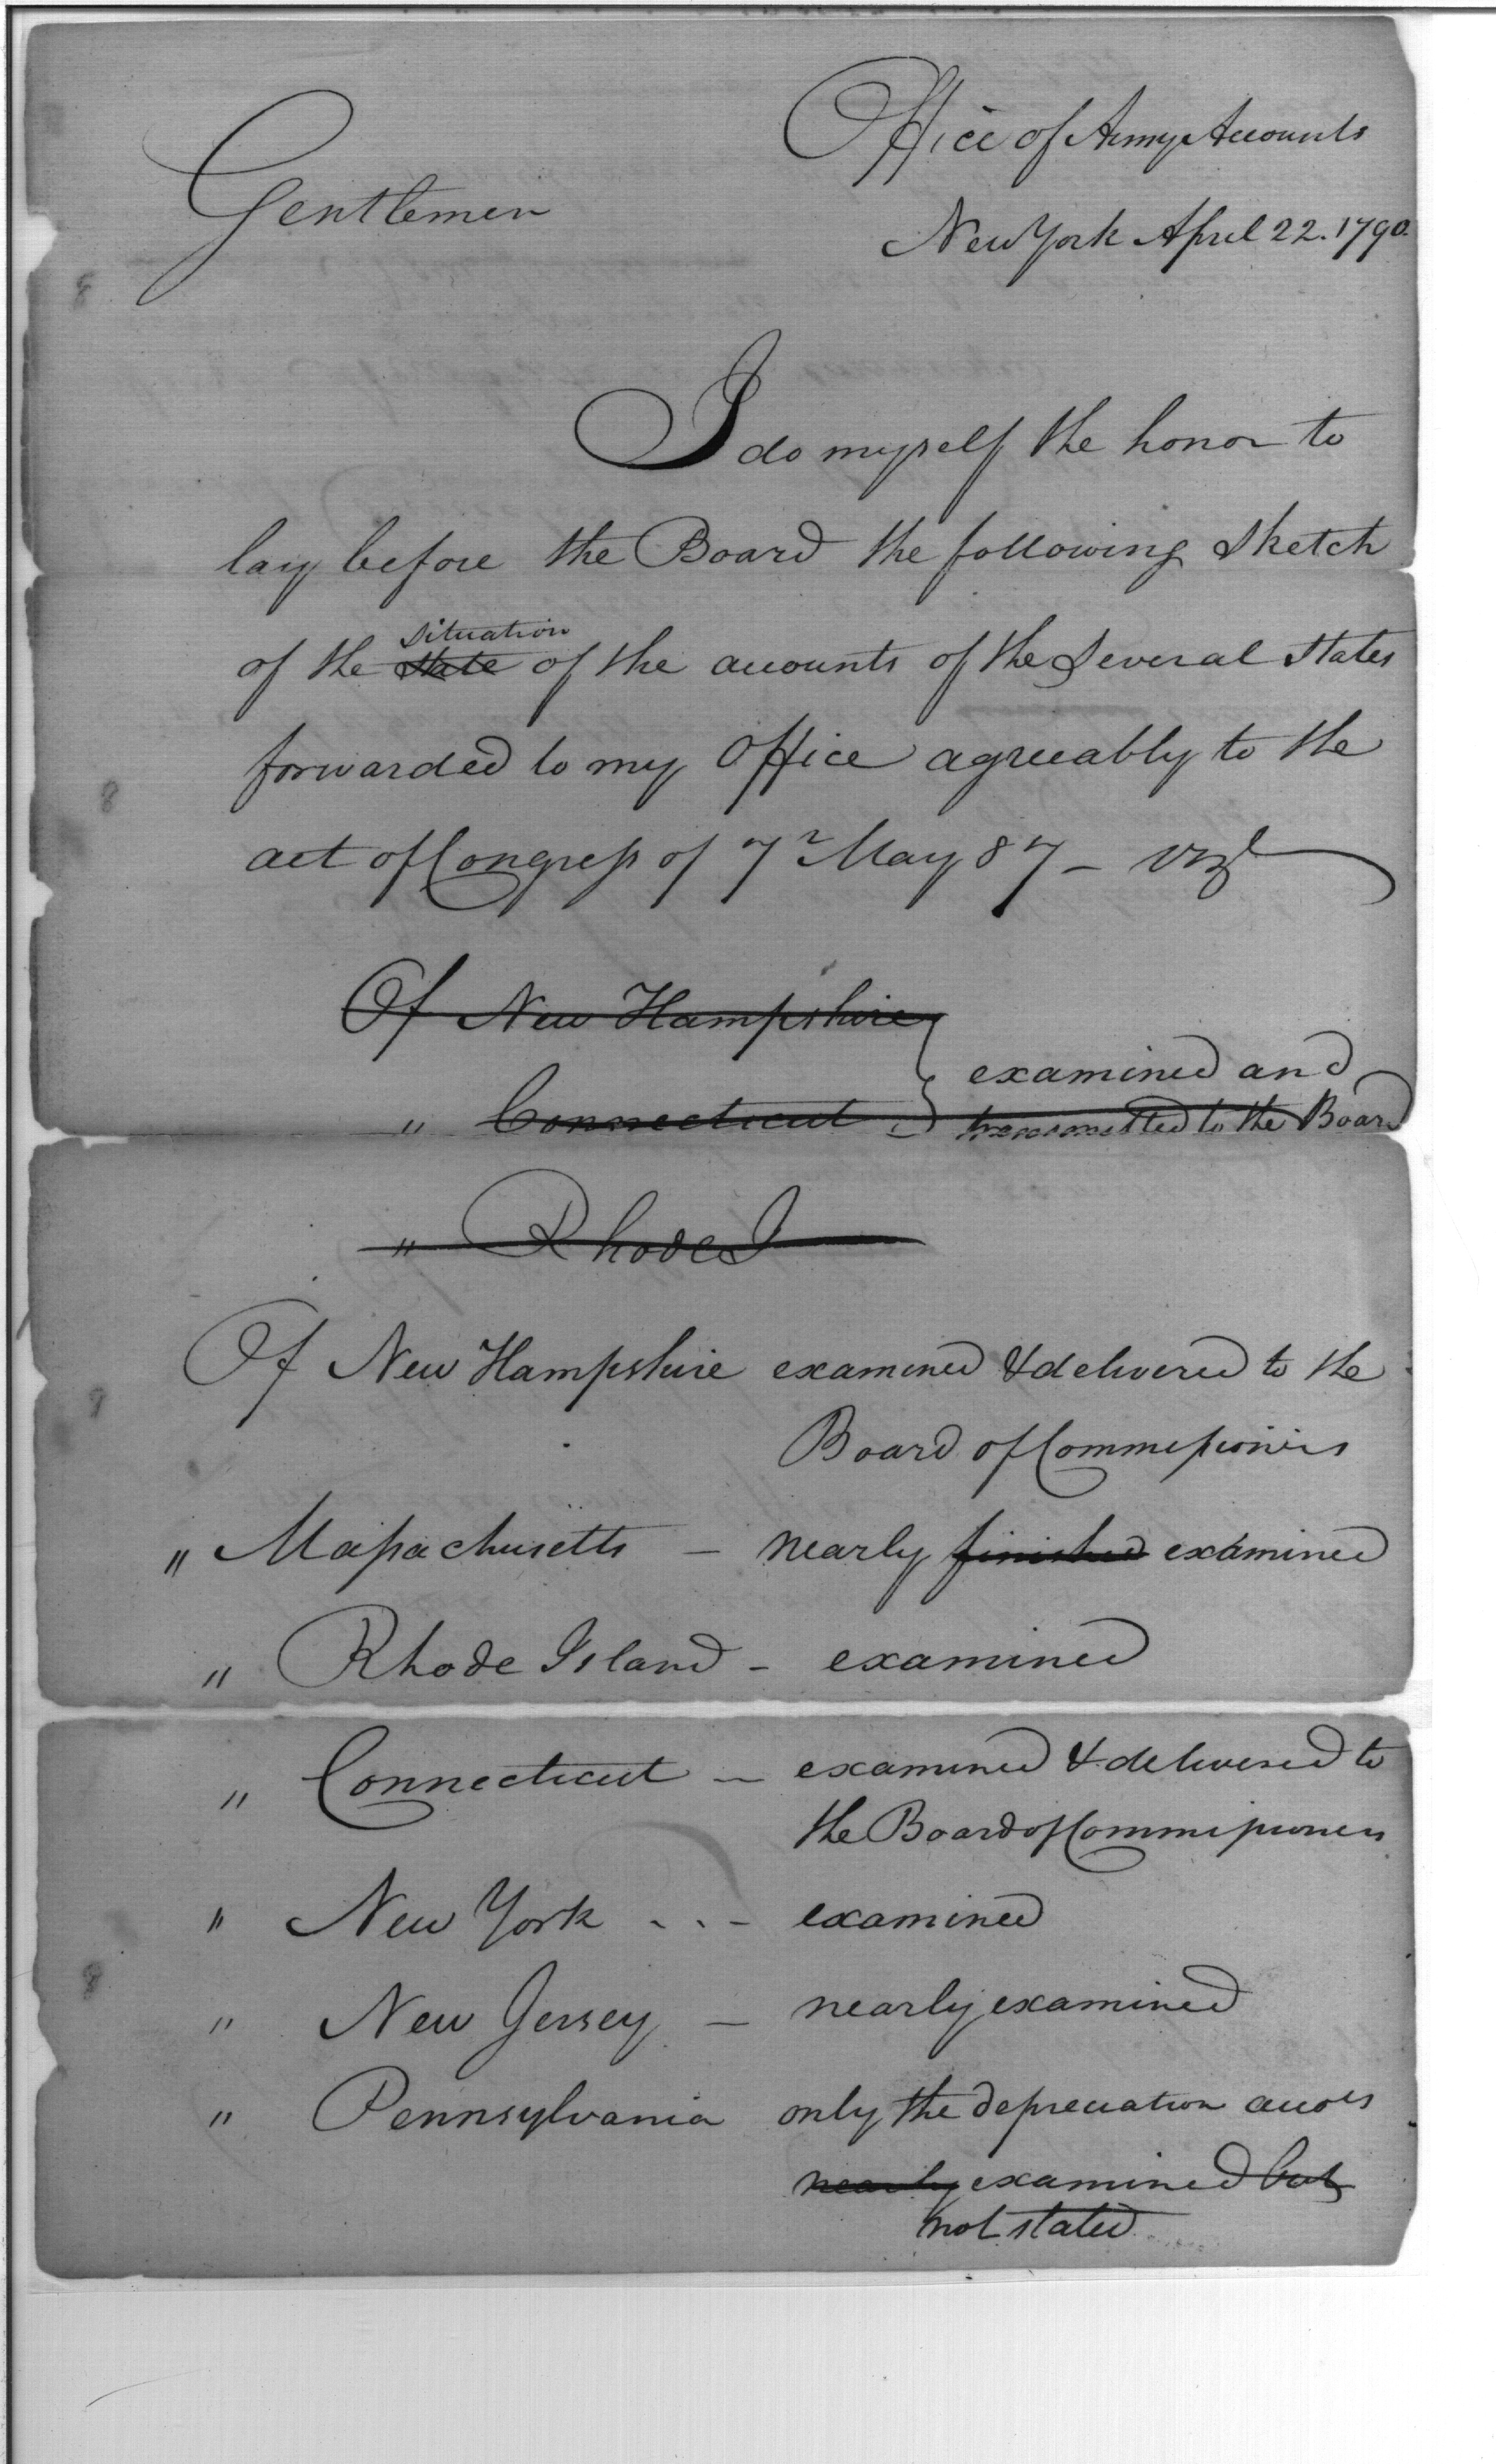 Office of Army Accounts
Gentlemen
New York April 22. 1790.
I do myself the honor to
lay before the Board the following Sketch
situation
of the state of the accounts of the Several States
forwarded to my Office agreeably to the
act of Congress of 7th May 87 – vizt
Of New Hampshire
examined and
" Connecticut – transmitted to the Board
" Rhode I
Of New Hampshire examined & delivered to the
Board of Commissioners
" Massachusetts – nearly finished examined
" Rhode Island – examined
" Connecticut – examined & delivered to
the Board of Commissioners
" New York - - - examined
" New Jersey – nearly examined
" Pennsylvania only the depreciation accots
nearly examined but
not stated